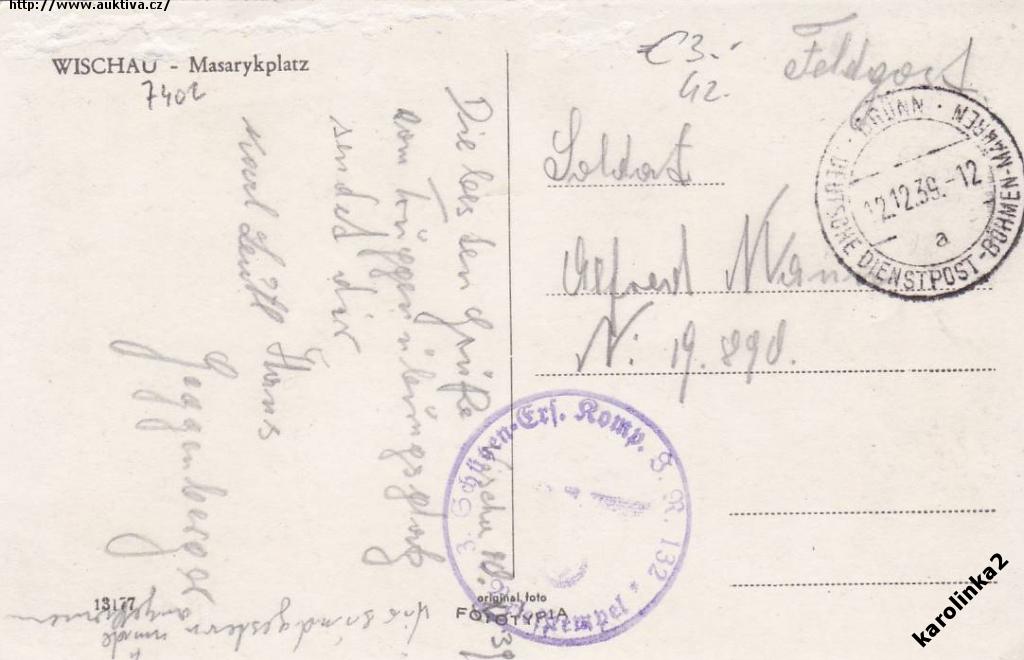 http://www.auktiva.cz/
WISCHAU - Masarykplatz
7402
Die besten Grüße
vom Truppenübungsplatz
sendet dir
Hans
Guggenberger
Wir sind gestern
angekommen
13177
original foto
FOTOTYPIA
€3.-
42.
Feldpost
Soldat
Alfred
N: 19.890.
BRÜNN · DEUTSCHE DIENSTPOST-BÖHMEN-MÄHREN
12.12.39.-12
a
3. Schützen-Ers. Komp. J. R. 132
karolinka2